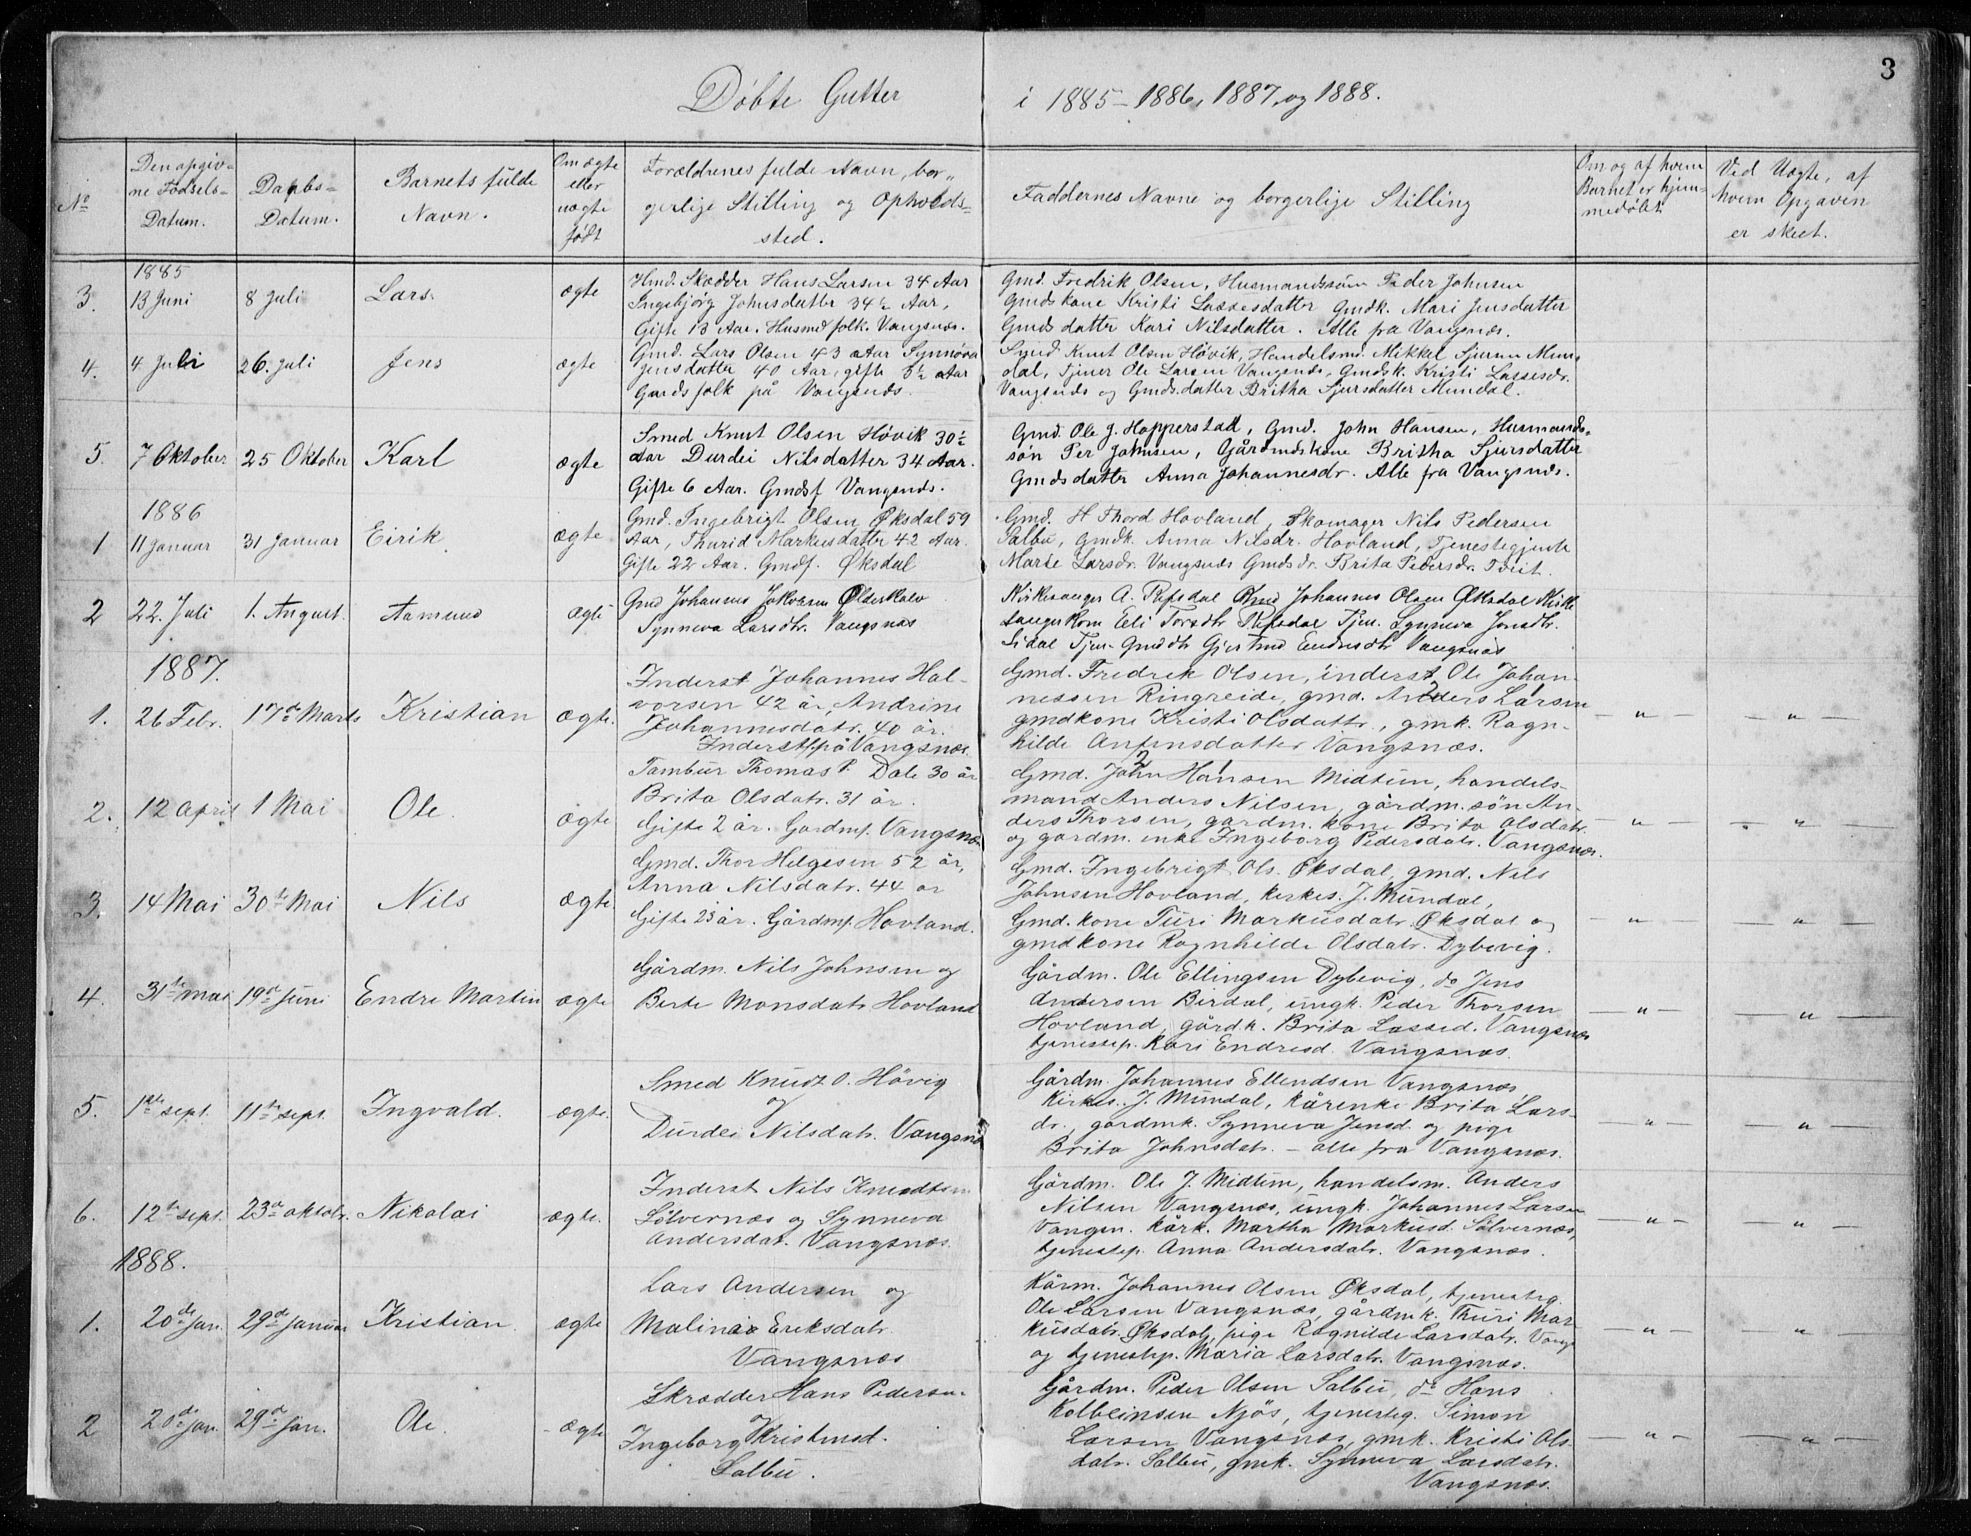 3
Döbte Gutter i 1885-1886, 1887, og 1888.
No
Den opgiv-
ne Fødsels-
Datum.
Daabs-
Datum.
Barnets fulde
Navn.
Om ægte
eller
uægte
født
Forældrenes fulde Navn, bor-
gerlige Stilling og Opholds-
sted.
Faddernes Navne og borgerlige Stilling
Om og af hvem
Barnet er hjem-
medøbt
Ved Uægte, af
hvem Opgaven
er skeet.
1885
3. 13 Juni 8 Juli Lars. ægte
Hmd. Skrædder Hans Larsen 34 Aar
Ingebjörg Johnsdatter 34½ Aar,
Gifte 13 Aar. Husmd folk. Vangsnæs.
Gmd. Fredrik Olsen, Husmandssøn Peder Johnsen
Gmdskone Kristi Lassesdatter Gmdk. Mari Jensdatter
Gmds datter Kari Nilsdatter. Alle fra Vangsnæs.
4. 4. Juli 26. Juli Jens ægte
Gmd. Lars Olsen 43 Aar Synnøva
Jensdatter 40 Aar, gifte 5½ Aar
Gmdsfolk på Vangsnæs.
Smed Knut Olsen Høvik, Handelsmd. Mikkel Sjursen Mun-
dal, Tjener Ole Larsen Vangsnæs, Gmdsk. Kristi Lassesdr.
Vangsnæs og Gmds.datter Britha Sjursdatter Mundal.
5. 7 Oktober 25 Oktober Karl ægte
Smed Knut Olsen Høvik 30½
Aar Durdei Nilsdatter 34 Aar.
Gifte 6 Aar. Gmdsf Vangsnæs.
Gmd. Ole J. Hopperstad, Gmd. John Hansen, Husmands-
søn Per Johnsen, Gårdmdskone Britha Sjursdatter
Gmdsdatter Anna Johannesdr. Alle fra Vangsnæs.
1886
1 11 Januar 31 Januar Eirik ægte
Gmd. Ingebrigt Olsen Øksdal 59
Aar, Thurid Markusdatter 42 Aar.
Gifte 22 Aar. Gmdf. Øksdal
Gmd. H Thord Hovland, Skomager Nils Pedersen
Salbu, Gmdk. Anna Nilsdr. Hovland, Tjenestegjente
Marte Larsdr. Vangsnæs Gmdsdr. Brita Pedersdr. Tveit.
2 22. Juli 1. August. Aamund ægte
Gmd Johannes Jakobsen Olderkalv
Synneva Larsdtr. Vangsnæs
Kirkesanger A. Repsdal Gmd Johannes Olsen Øksdal Kirke
sanger Kone Eli Torsdtr Repsdal Tjen. Synneva Jonsdtr.
Tjen. Gmddtr Gjertrud Endresdtr Vangsnæs
1887.
1. 26 Febr. 17de Marts Kristian ægte.
Inderst Johannes Hal-
vorsen 42 år, Andrine
Johannesdatr. 40 år.
Inderstf. på Vangsnæs.
Gmd. Fredrik Olsen, inderst Ole Johan-
nessen Ringreide, gmd. Anders Larsen
gmdkone Kristi Olsdattr, gmk. Ragn-
hilde Anfinsdatter Vangsnæs.
— " — — " —
2. 12 April 1 Mai Ole. ægte
Tambur Thomas P. Dale 30 år
Brita Olsdatr. 31 år.
Gifte 2 år. Gardmf. Vangsnæs
Gmd. John Hansen Midtun, handels-
mand Anders Nilsen, gårdm. søn An-
ders Thorsen, gardm. kone Brita Olsdatr.
og gardm. enke Ingeborg Pedersdatr. Vangsnæs.
— " — — " —
3. 14 Mai 30te Mai Nils ægte.
Gmd. Thor Helgesen 52 år,
Anna Nilsdatr. 44 år
Gifte 23 år. Gårdmf. Hovland.
Gmd. Ingebrigt Ols. Øksdal, gmd. Nils
Johnsen Hovland, kirkes. J. Mundal,
Gmd. kone Turi Markusdatr. Øksdal og
gmdkone Ragnhilde Olsdatr. Dybevig.
— " — — " —
4. 31te mai 19de Juni Endre Martin ægte
Gårdm. Nils Johnsen og
Berte Monsdatr Hovland
Gårdm. Ole Ellingsen Dybevig, do Jens
Andersen Berdal, ungk. Peder Thorsen
Hovland, gårdk. Brita Lassed. Vangsnæs
tjenestep. Kari Endresd. Vangsnæs.
— " — — " —
5. 1ste sept. 11te sept. Ingvald. ægte.
Smed Knudt O. Hövig
og
Durdei Nilsdatr. Vangsnæs
Gårdm. Johannes Ellendsen Vangsnæs
kirkes. J. Mundal, kårenke Brita Lars-
dr., gårdmk. Synneva Jensd. og pige
Brita Johnsdatr. – alle fra Vangsnæs.
— " — — " —
6. 12te sept. 23de oktobr. Nikolai ægte.
Inderst Nils Knudtsen
Sölvernæs og Synneva
Andersdat. Vangsnæs.
Gårdm. Ole J. Midtun, handelsm. Anders
Nilsen Vangsnæs, ungk. Johannes Larsen
Vangsn. kårk. Martha Markusd. Sölvernæs,
tjenestep. Anna Andersdatr. Vangsnæs.
— " — — " —
1888.
1. 20de Jan. 29de Januar Kristian. ægte
Lars Andersen og
Malina Eriksdatr.
Vangsnæs
Kårm. Johannes Olsen Øksdal, tjenesteg.
Ole Larsen Vangsnæs, gårdmk. Thuri Mar-
kusdatr. Øksdal, pige Ragnilde Larsdatr. Vangs
og tjenestep. Maria Larsdatr. Vangsnæs.
— " — — " —
2 20de Jan. 29de Jan. Ole. ægte
Skrædder Hans Pedersen
Ingeborg Kristensd.
Salbu.
Gårdm. Peder Olsen Salbu, do Hans
Kolbeinsen Njøs, tjenesteg. Simon
Larsen Vangsnæs, gmk. Kristi Ols-
datr. Salbu, gmk. Synneva Larsdatr.
Vangsnæs.
— " — — " —